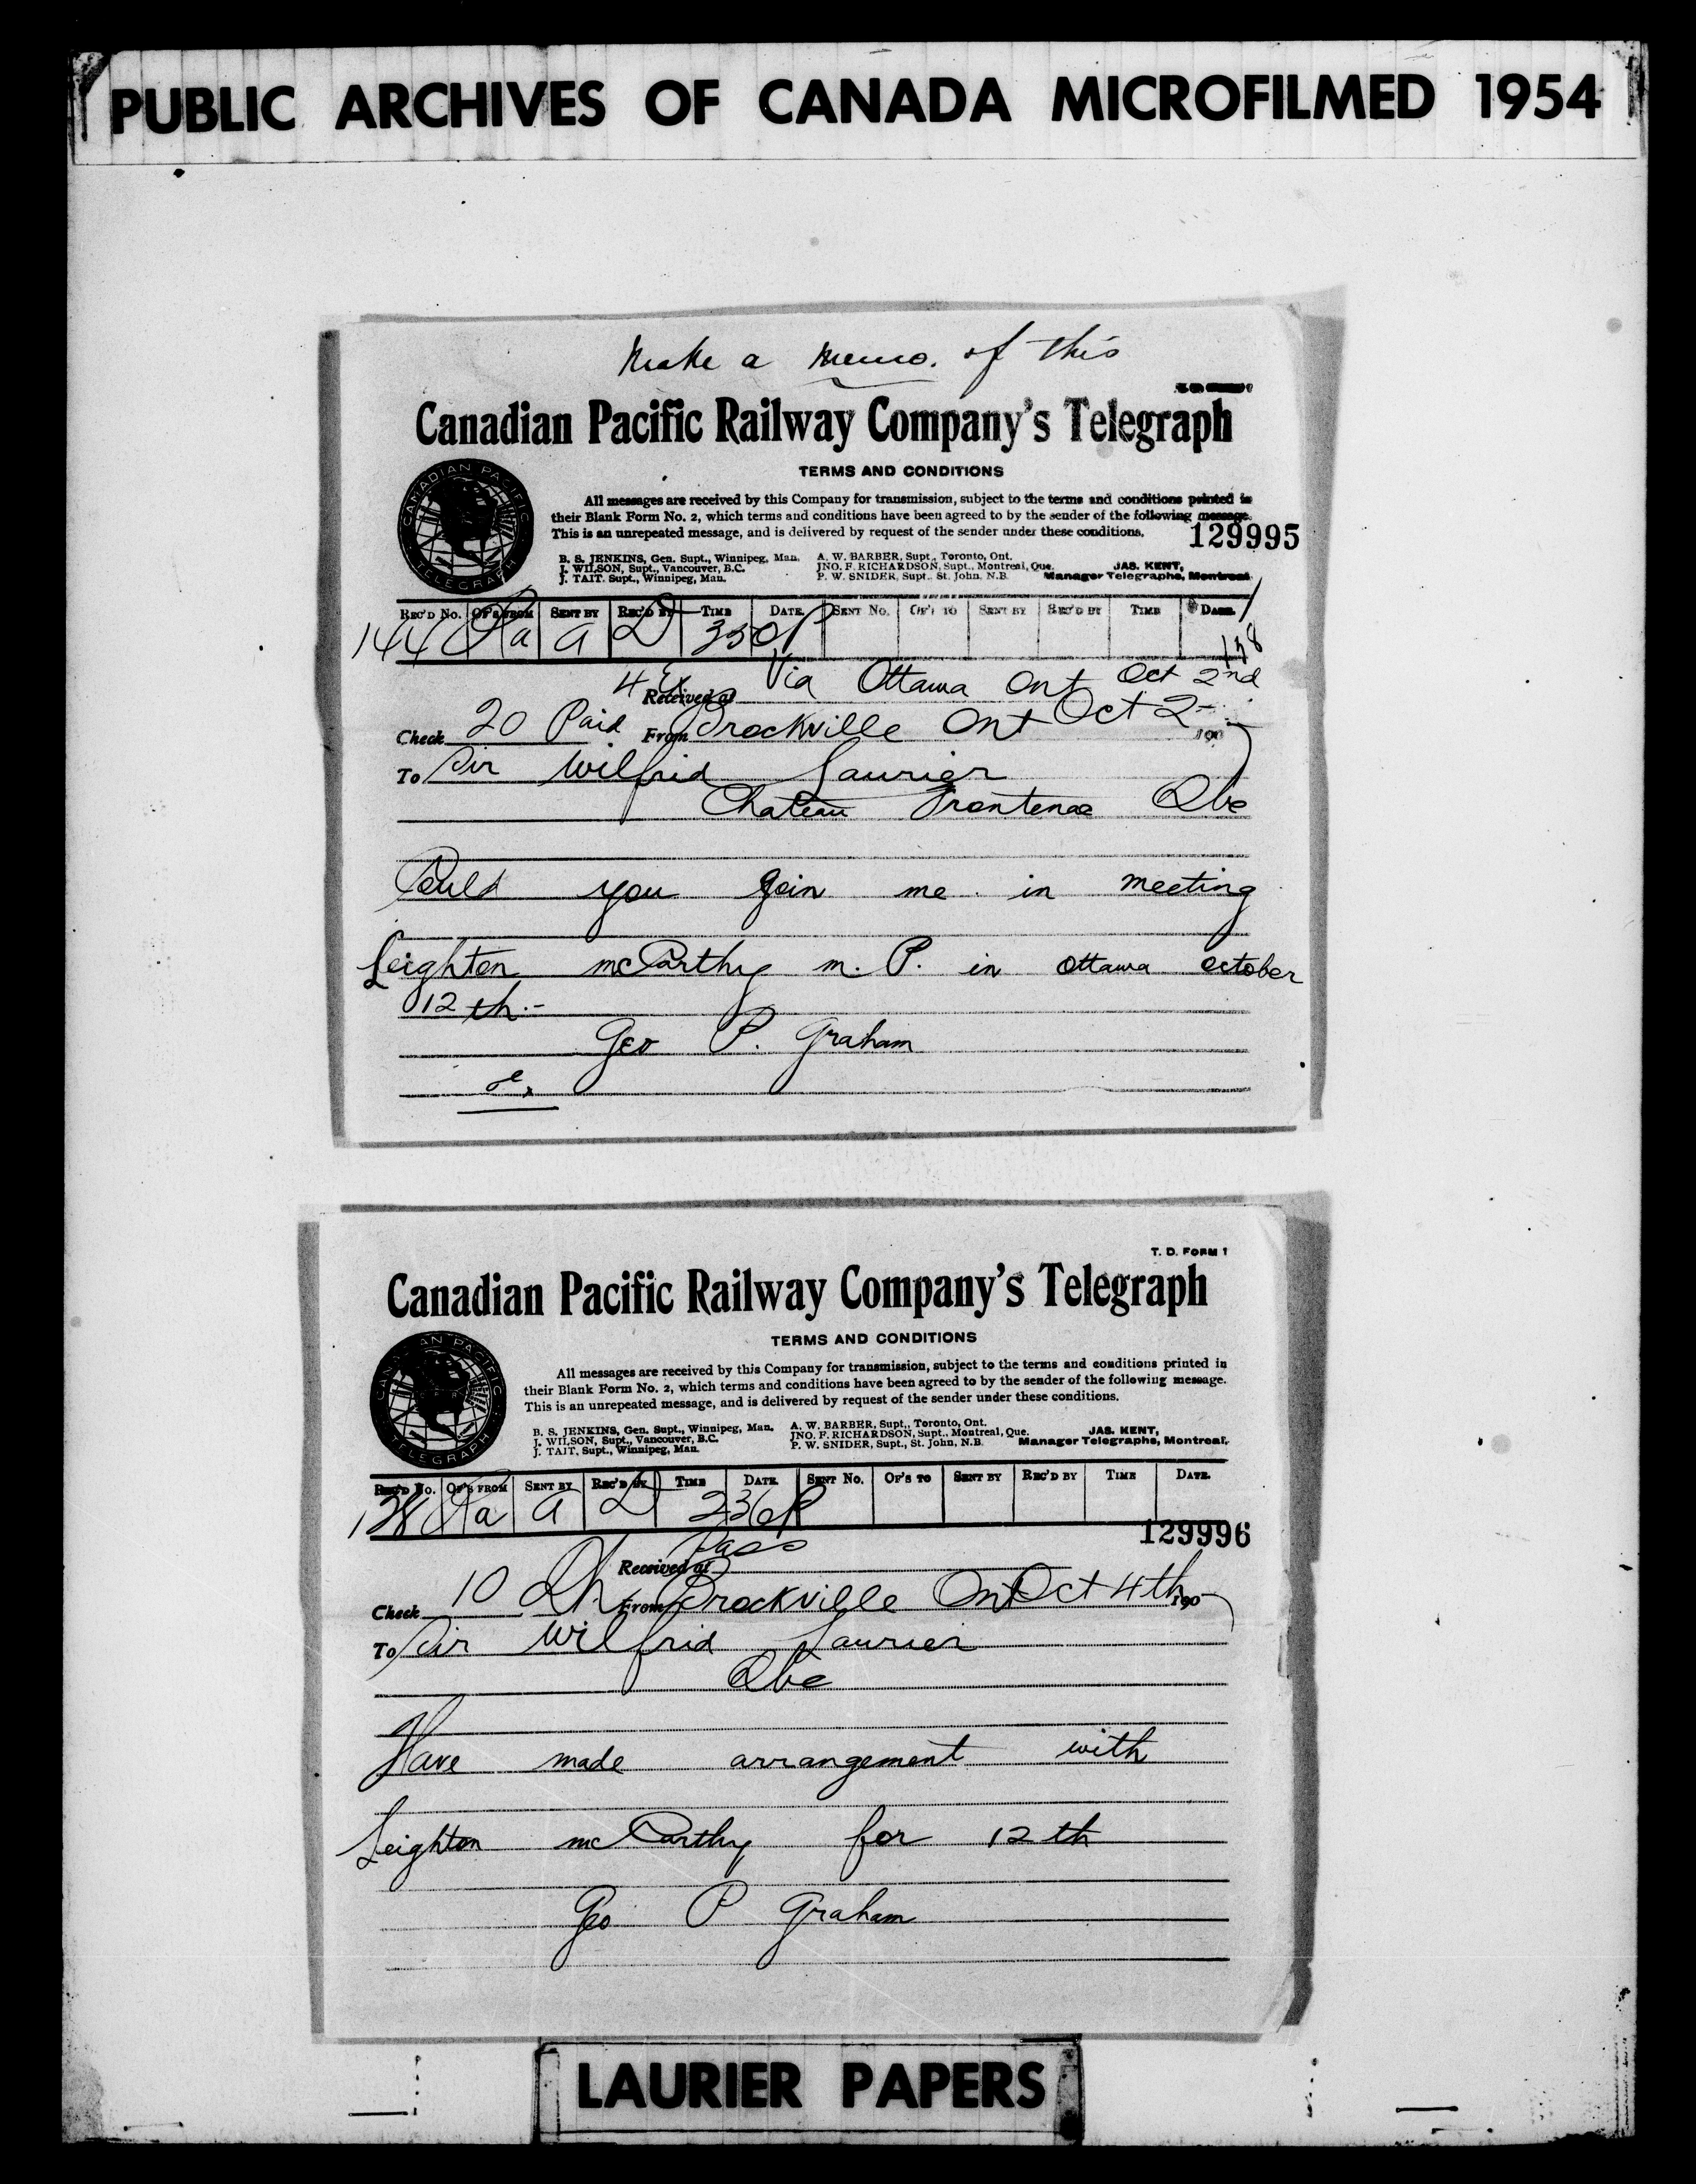 PUBLIC ARCHIVES OF CANADA MICROFILMED 1954
Make a memo. of this
Canadian Pacific Railway Company's Telegraph
TERMS AND CONDITIONS
CANADIAN PACIFIC TELEGRAPH
All messages are received by this Company for transmission, subject to the terms and conditions printed in
their Blank Form No. 2, which terms and conditions have been agreed to by the sender of the following message.
This is an unrepeated message, and is delivered by request of the sender under these conditions.
129995
B. S. JENKINS, Gen. Supt., Winnipeg, Man. A. W. BARBER, Supt., Toronto, Ont.
J. WILSON, Supt., Vancouver, B.C. JNO. F. RICHARDSON, Supt., Montreal, Que. JAS. KENT,
J. TAIT. Supt., Winnipeg, Man. P. W. SNIDER, Supt. St. John, N.B. Manager Telegraphs, Montreal
REC'D No. OF'S FROM SENT BY REC'D BY TIME DATE SENT No. OF'S TO SENT BY REC'D BY TIME DATE
144 a a D 350P
Received at Via Ottawa Ont Oct 2nd
Check 20 Paid From Brockville Ont Oct 2 190
To Sir Wilfrid Laurier
Chateau Frontenac Qbe
Could you join me in meeting
Leighton McCarthy M. P. in Ottawa October
12th.-
Geo P. Graham
T. D. FORM 1
Canadian Pacific Railway Company's Telegraph
TERMS AND CONDITIONS
CANADIAN PACIFIC TELEGRAPH
All messages are received by this Company for transmission, subject to the terms and conditions printed in
their Blank Form No. 2, which terms and conditions have been agreed to by the sender of the following message.
This is an unrepeated message, and is delivered by request of the sender under these conditions.
B. S. JENKINS, Gen. Supt., Winnipeg, Man. A. W. BARBER, Supt., Toronto, Ont.
J. WILSON, Supt., Vancouver, B.C. JNO. F. RICHARDSON, Supt., Montreal, Que. JAS. KENT,
J. TAIT, Supt., Winnipeg, Man. P. W. SNIDER, Supt., St. John, N.B. Manager Telegraphs, Montreal.
REC'D No. OF'S FROM SENT BY REC'D BY TIME DATE SENT No. OF'S TO SENT BY REC'D BY TIME DATE
128 a a D 236P
129996
Received at Pass
Check 10 DH From Brockville Ont Oct 4th 190
To Sir Wilfrid Laurier
Qbe
Have made arrangement with
Leighton McCarthy for 12th
Geo P Graham
LAURIER PAPERS